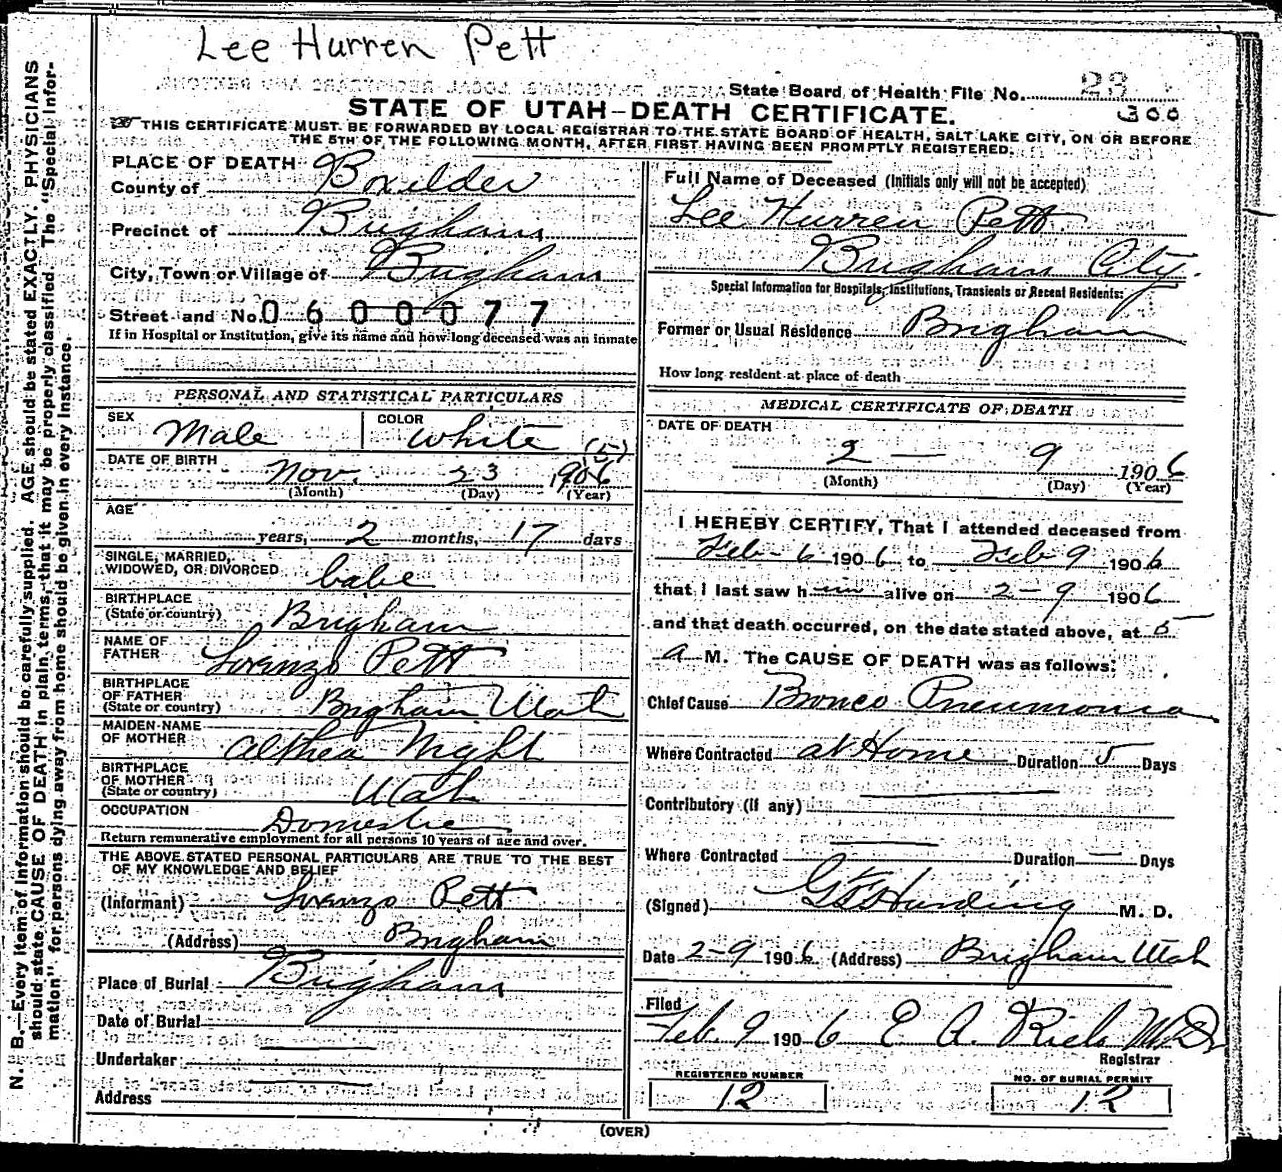 Lee Hurren Pett
State Board of Health File No. 23
300
STATE OF UTAH—DEATH CERTIFICATE.
THIS CERTIFICATE MUST BE FORWARDED BY LOCAL REGISTRAR TO THE STATE BOARD OF HEALTH, SALT LAKE CITY, ON OR BEFORE
THE 5TH OF THE FOLLOWING MONTH, AFTER FIRST HAVING BEEN PROMPTLY REGISTERED.
PLACE OF DEATH
County of Boxelder
Precinct of Brigham
City, Town or Village of Brigham
Street and No. 0600077
If in Hospital or Institution, give its name and how long deceased was an inmate
PERSONAL AND STATISTICAL PARTICULARS
SEX Male COLOR White
(5)
DATE OF BIRTH Nov. 23 1906
(Month) (Day) (Year)
AGE
years, 2 months, 17 days
SINGLE, MARRIED,
WIDOWED, OR DIVORCED babe
BIRTHPLACE
(State or country) Brigham
NAME OF
FATHER Lorenzo Pett
BIRTHPLACE
OF FATHER
(State or country) Brigham Utah
MAIDEN NAME
OF MOTHER Althea Night
BIRTHPLACE
OF MOTHER
(State or country) Utah
OCCUPATION Domestic
Return remunerative employment for all persons 10 years of age and over.
THE ABOVE STATED PERSONAL PARTICULARS ARE TRUE TO THE BEST
OF MY KNOWLEDGE AND BELIEF
(Informant) Lorenzo Pett
(Address) Brigham
Place of Burial Brigham
Date of Burial
Undertaker
Address
Full Name of Deceased (Initials only will not be accepted)
Lee Hurren Pett
Brigham City.
Special Information for Hospitals, Institutions, Transients or Recent Residents:
Former or Usual Residence Brigham
How long resident at place of death
MEDICAL CERTIFICATE OF DEATH
DATE OF DEATH
2 — 9 1906
(Month) (Day) (Year)
I HEREBY CERTIFY, That I attended deceased from
Feb - 6 1906 to Feb 9 1906
that I last saw him alive on 2-9 1906
and that death occurred, on the date stated above, at 5
a M. The CAUSE OF DEATH was as follows:
Chief Cause Bronco Pneumonia
Where Contracted at Home Duration 5 Days
Contributory (if any)
Where Contracted Duration — Days
(Signed) Harding M. D.
Date 2-9 1906 (Address) Brigham Utah
Filed
Feb. 9 1906 E. A. Rich M.D.
Registrar
REGISTERED NUMBER
12
NO. OF BURIAL PERMIT
12
(OVER)
N. B.—Every item of information should be carefully supplied. AGE should be stated EXACTLY. PHYSICIANS
should state CAUSE OF DEATH in plain terms, that it may be properly classified. The "Special Infor-
mation" for persons dying away from home should be given in every instance.